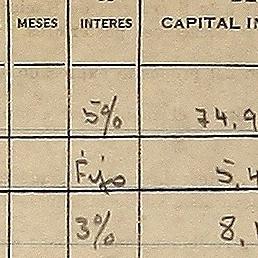 MESES INTERES CAPITAL IN
5% 74,9
Fijo 5,4
3% 8,